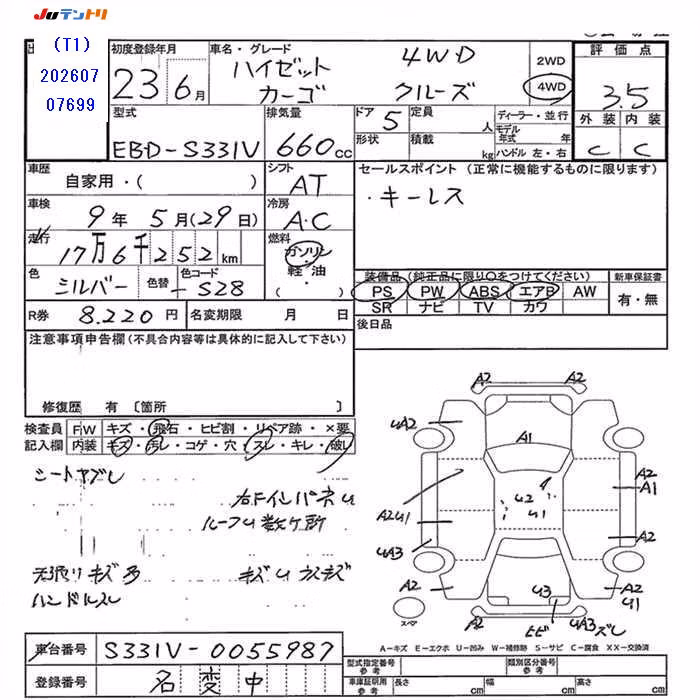 JUテントリ
(T1)
202607
07699
初度登録年月
23 6月
車名・グレード
ハイゼット 4WD
カーゴ クルーズ
2WD
4WD
評価点
3.5
外装 内装
C C
型式
EBD-S331V
排気量
660cc
ドア 5
形状
定員 人
積載 kg
ディーラー・並行
モデル年式 年
ハンドル 左・右
車歴
自家用・( )
シフト
AT
セールスポイント (正常に機能するものに限ります)
・キーレス
車検
9年 5月(29日)
冷房
A・C
走行
17万6千252km
燃料
ガソリン
軽油
( )
色
シルバー
色替
色コード
S28
装備品 (純正品に限り○をつけてください)
PS PW ABS エアB AW
SR ナビ TV カワ
新車保証書
有・無
R券 8.220円
名変期限 月 日
後日品
注意事項申告欄 (不具合内容等は具体的に記入して下さい)
修復歴 有 〔箇所 〕
検査員 FW キズ・飛石・ヒビ割・リペア跡・×要
記入欄 内装 キズ・汚レ・コゲ・穴・スレ・キレ・破レ
シートヤブレ
右ドインパネU
ルーフU数ケ所
キズ多
キズU
ハンドルスレ
A2 A2
UA2 A2
A1
A2
A1
U2
U1
A2U1
UA3
A2
A2
A2
U1
U3
UA3
ヒビ
ズレ
スペア
A-キズ E-エクボ U-凹み W-補修跡 S-サビ C-腐食 XX-交換済
車台番号 S331V-0055987
登録番号 名変中
型式指定番号
参考
類別区分番号
参考
車庫証明用
参考
長さ cm 幅 cm 高さ cm